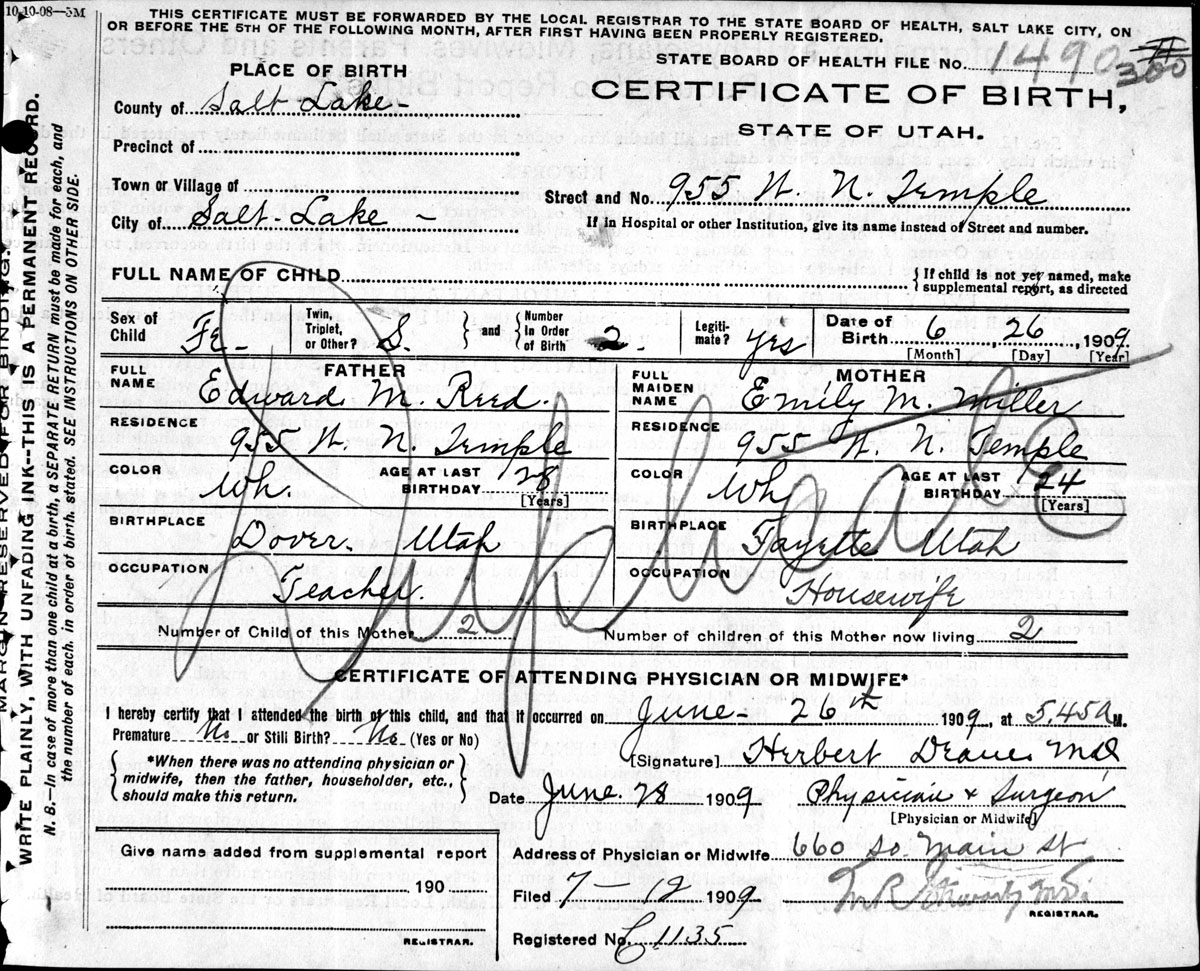 10-10-08—5M
THIS CERTIFICATE MUST BE FORWARDED BY THE LOCAL REGISTRAR TO THE STATE BOARD OF HEALTH, SALT LAKE CITY, ON
OR BEFORE THE 5TH OF THE FOLLOWING MONTH, AFTER FIRST HAVING BEEN PROPERLY REGISTERED.
STATE BOARD OF HEALTH FILE No. 1490
300
PLACE OF BIRTH
CERTIFICATE OF BIRTH,
STATE OF UTAH.
County of Salt Lake-
Precinct of
Town or Village of
City of Salt-Lake -
Street and No. 955 W. N. Temple
If in Hospital or other Institution, give its name instead of Street and number.
FULL NAME OF CHILD
{If child is not yet named, make
supplemental report, as directed
Sex of Child Fe-
Twin, Triplet, or Other? S.
and {Number in Order of Birth 2.
Legitimate? yes
Date of Birth 6, 26, 1909.
[Month] [Day] [Year]
FATHER
FULL NAME Edward M. Reed.
RESIDENCE 955 W. N. Temple
COLOR Wh. AGE AT LAST BIRTHDAY 28
[Years]
BIRTHPLACE Dover. Utah
OCCUPATION Teacher.
MOTHER
FULL MAIDEN NAME Emily M. Miller
RESIDENCE 955 W. N. Temple
COLOR Wh AGE AT LAST BIRTHDAY 24
[Years]
BIRTHPLACE Fayette Utah
OCCUPATION Housewife
Duplicate
Number of Child of this Mother 2
Number of children of this Mother now living 2
CERTIFICATE OF ATTENDING PHYSICIAN OR MIDWIFE*
I hereby certify that I attended the birth of this child, and that it occurred on June- 26th 1909, at 5.45 A M.
Premature No or Still Birth? No (Yes or No)
*When there was no attending physician or
midwife, then the father, householder, etc.,
should make this return.
[Signature] Herbert MD
Date June. 28 1909 Physician & Surgeon
[Physician or Midwife]
Give name added from supplemental report
190
REGISTRAR.
Address of Physician or Midwife 660 So. Main St
Filed 7-12 1909
REGISTRAR.
Registered No. C. 1135
MARGIN RESERVED FOR BINDING.
WRITE PLAINLY, WITH UNFADING INK--THIS IS A PERMANENT RECORD.
N. B.—In case of more than one child at a birth, a SEPARATE RETURN must be made for each, and
the number of each, in order of birth, stated. SEE INSTRUCTIONS ON OTHER SIDE.